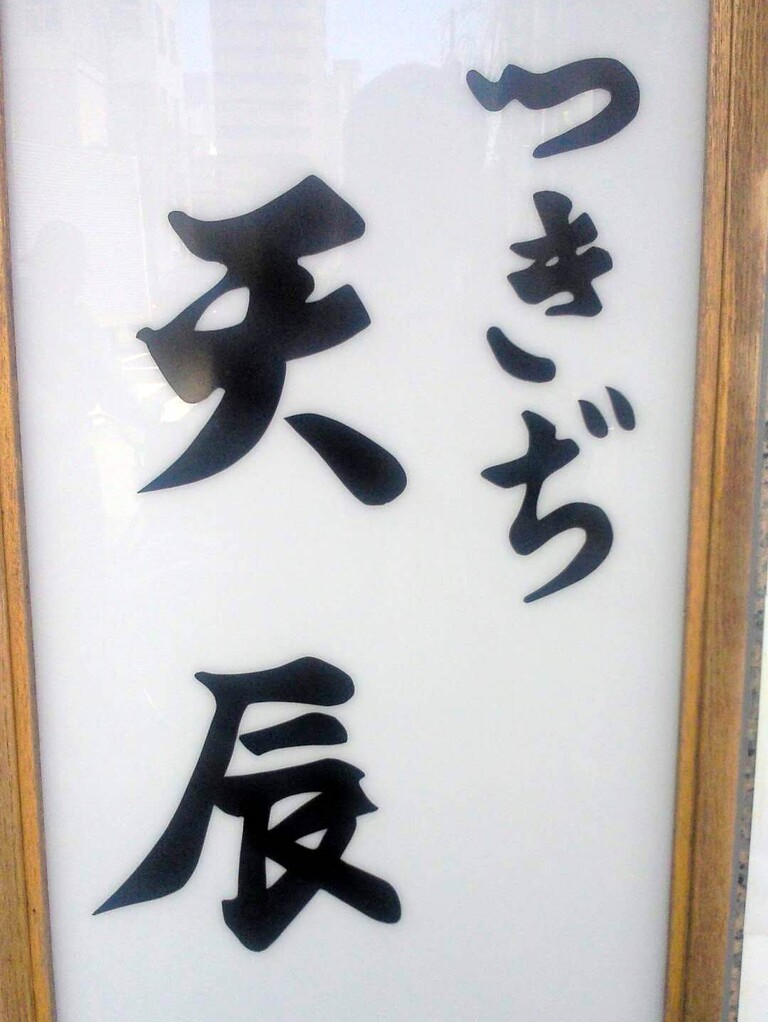 つきぢ
天辰